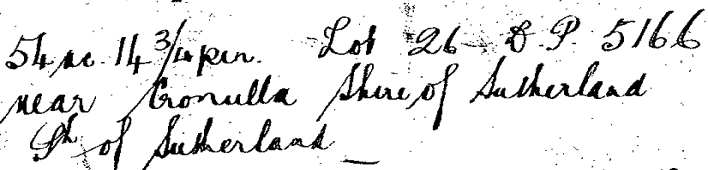 54 ac 14 3/4 per. Lot 26 D.P. 5166
near Cronulla Shire of Sutherland
Ph of Sutherland